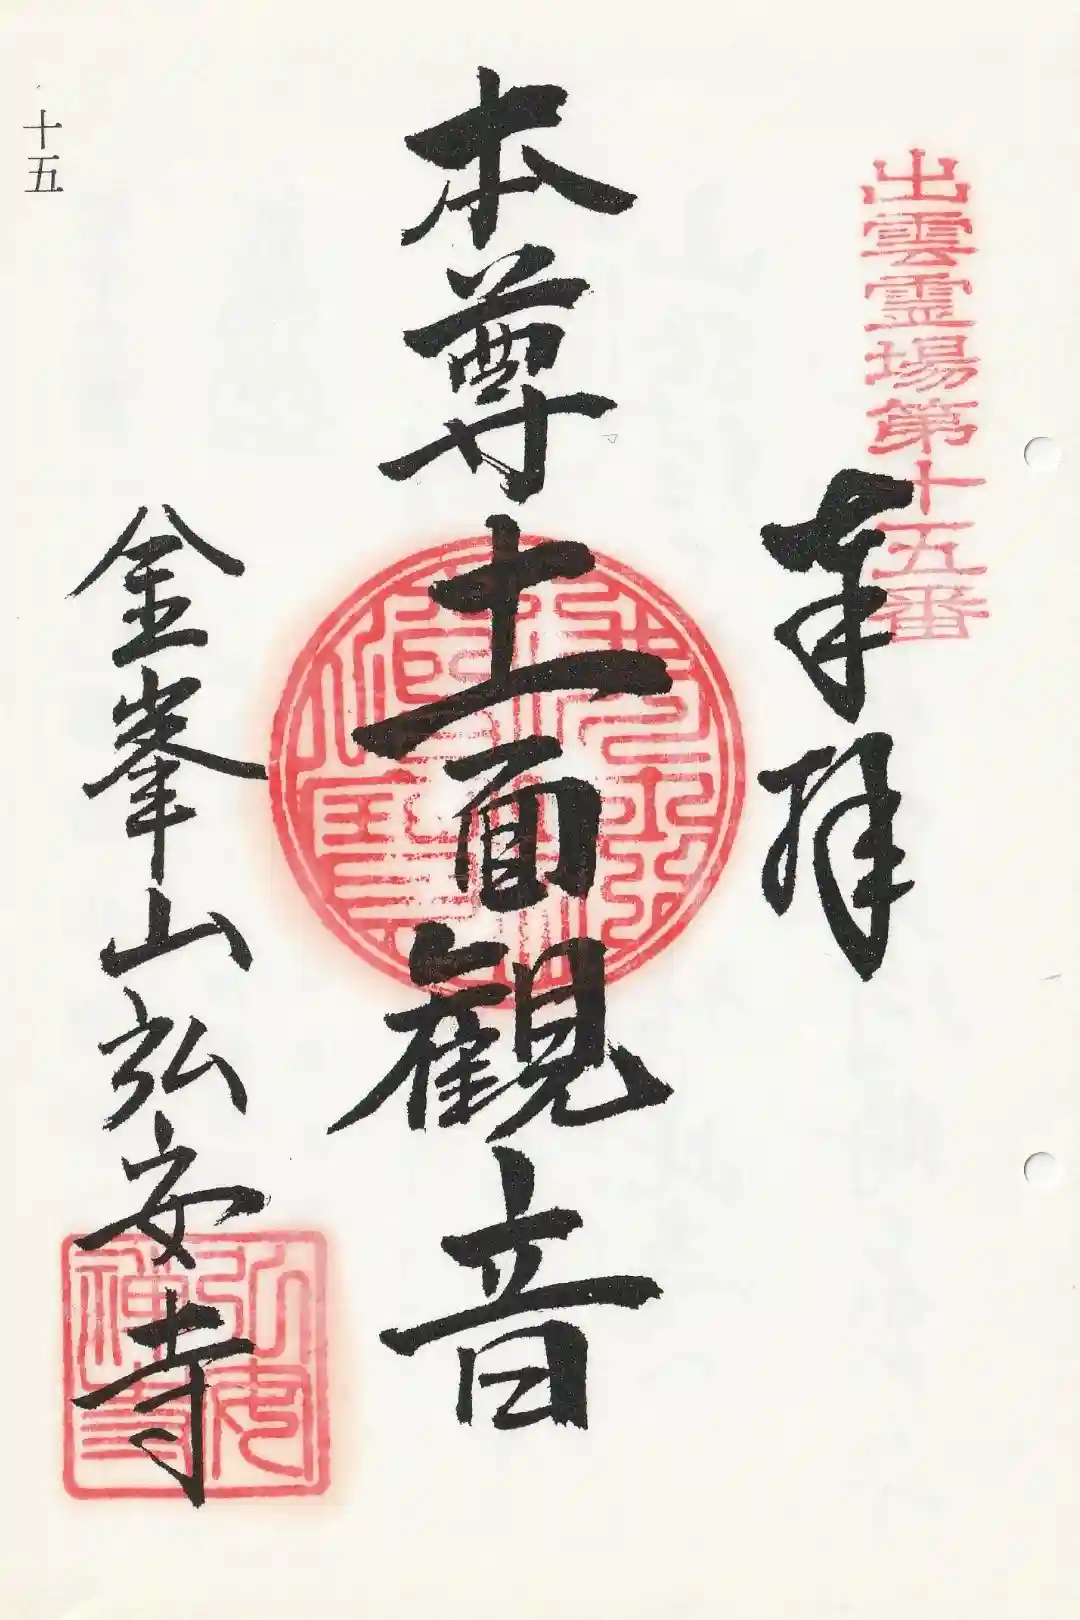 出雲霊場第十五番
奉拝
本尊十一面観音
金峯山弘安寺
弘安禅寺
十五